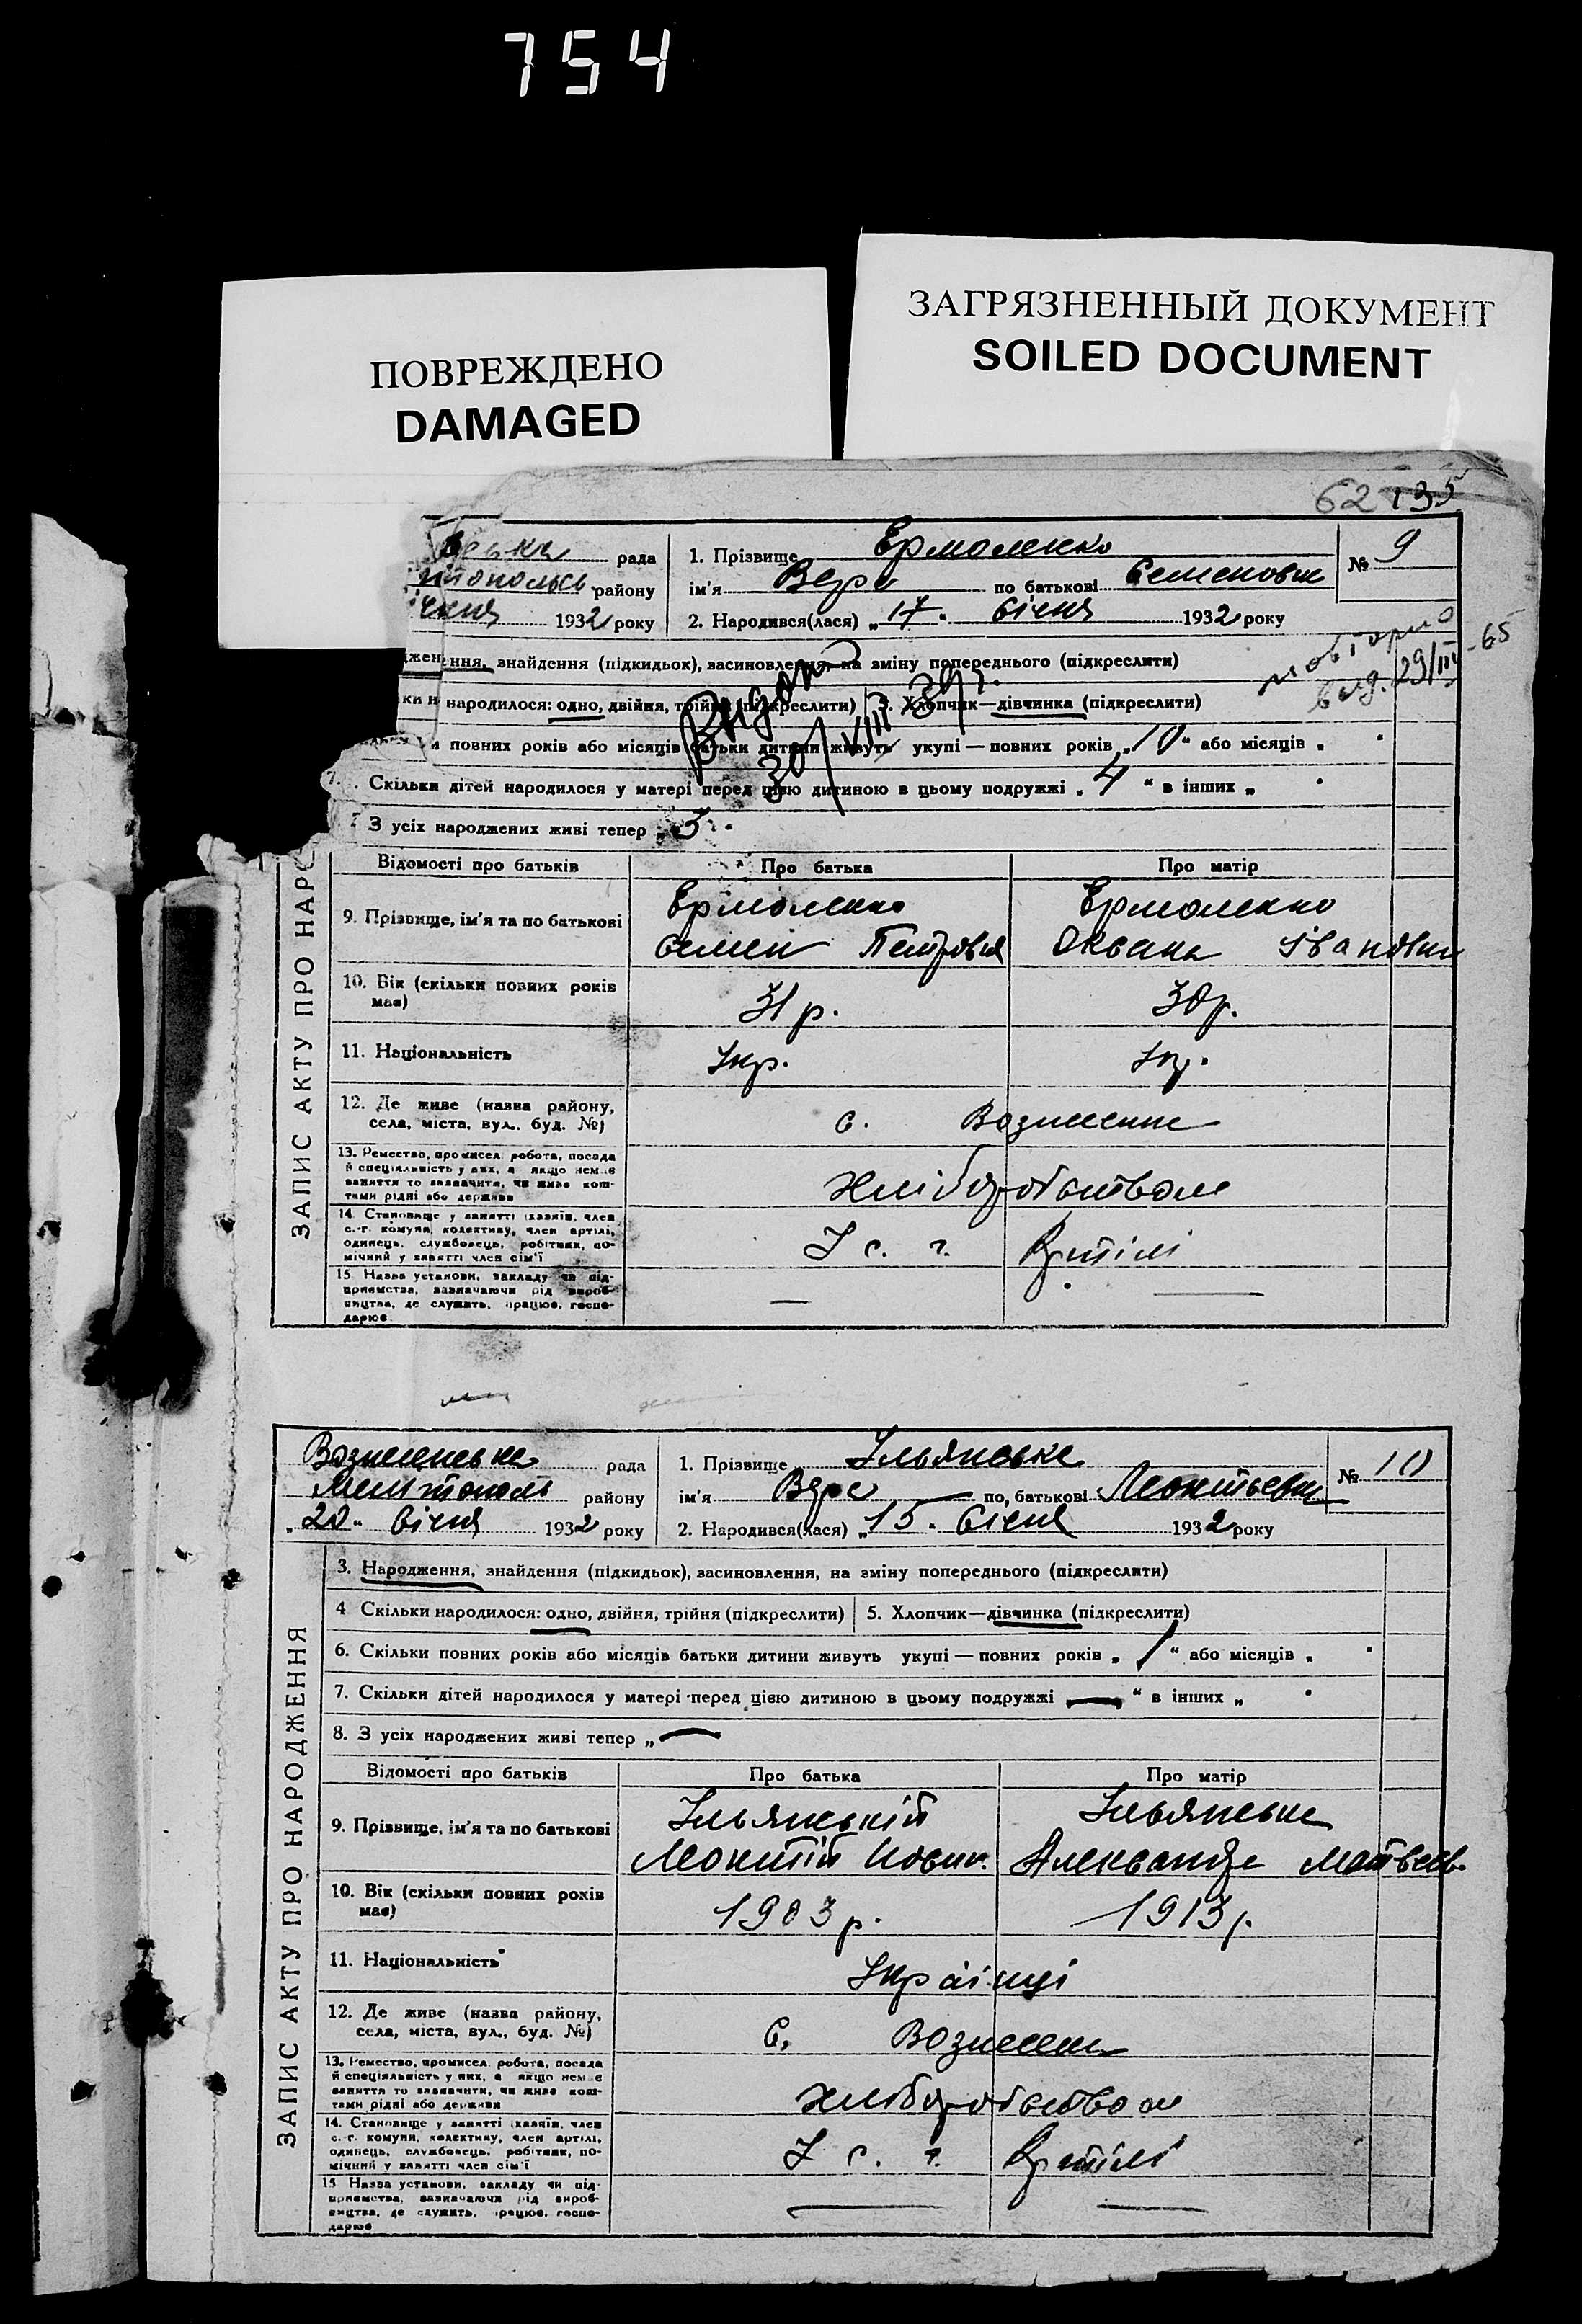 754
ПОВРЕЖДЕНО
DAMAGED
ЗАГРЯЗНЕННЫЙ ДОКУМЕНТ
SOILED DOCUMENT
62 135
рада
району
1932 року
1. Прізвище Ермоленко
ім'я Вера по батькові Семеновна
№ 9
2. Народився(лася) „17" Січня 1932 року
повторно
вид. 29/III-65
ння, знайдення (підкидьок), засиновлення, на зміну попереднього (підкреслити)
народилося: одно, двійня, трійня (підкреслити) 5. Хлопчик—дівчинка (підкреслити)
Видано
30/VIII 39 г.
повних років або місяців батьки дитини живуть укупі — повних років „10" або місяців „ "
7. Скільки дітей народилося у матері перед цією дитиною в цьому подружжі „4" в інших „ "
З усіх народжених живі тепер „5"
Відомості про батьків
Про батька
Про матір
9. Прізвище, ім'я та по батькові
Ермоленко
Семен Петровия
Ермоленко
Оксана Івановна
10. Вік (скільки повних років має)
31 р.
30 р.
11. Національність
Укр.
Укр.
12. Де живе (назва району,
села, міста, вул., буд. №)
с. Вознесенне
13. Ремество, промисел, робота, посада
й спеціяльність у них, а якщо немає
заняття то зазначити, чи живе кош-
тами рідні або держави
хліборобством
14. Становище у занятті (хазяїн, член
с.-г. комуни, колективу, член артілі,
одинець, службовець, робітник, по-
мічний у занятті член сім'ї
У с. г. Артілі
15. Назва установи, закладу чи під-
приємства, зазначаючи рід вироб-
ництва, де служить, працює, госпо-
дарює
ЗАПИС АКТУ ПРО НАРО
Вознесенська рада
Мелітополь району
„20" Січня 1932 року
1. Прізвище Ільянська
ім'я Вера по батькові Леонтьевна
№ 10
2. Народився(лася) „15" Січня 1932 року
3. Народження, знайдення (підкидьок), засиновлення, на зміну попереднього (підкреслити)
4 Скільки народилося: одно, двійня, трійня (підкреслити) 5. Хлопчик—дівчинка (підкреслити)
6. Скільки повних років або місяців батьки дитини живуть укупі — повних років „1" або місяців „ "
7. Скільки дітей народилося у матері перед цією дитиною в цьому подружжі — " в інших „ "
8. З усіх народжених живі тепер „—
Відомості про батьків
Про батька
Про матір
9. Прізвище, ім'я та по батькові
Ільянський
Леонтій
Ільянська
Александра Матвеев.
10. Вік (скільки повних років має)
1903 р.
1913 р.
11. Національність
Українці
12. Де живе (назва району,
села, міста, вул., буд. №)
с. Вознесен
13. Ремество, промисел, робота, посада
й спеціяльність у них, а якщо немає
заняття то зазначити, чи живе кош-
тами рідні або держави
хліборобством
14. Становище у занятті (хазяїн, член
с.-г. комуни, колективу, член артілі,
одинець, службовець, робітник, по-
мічний у занятті член сім'ї
У с. г. Артілі
15 Назва установи, закладу чи під-
приємства, зазначаючи рід вироб-
ництва, де служить, працює, госпо-
дарює
ЗАПИС АКТУ ПРО НАРОДЖЕННЯ